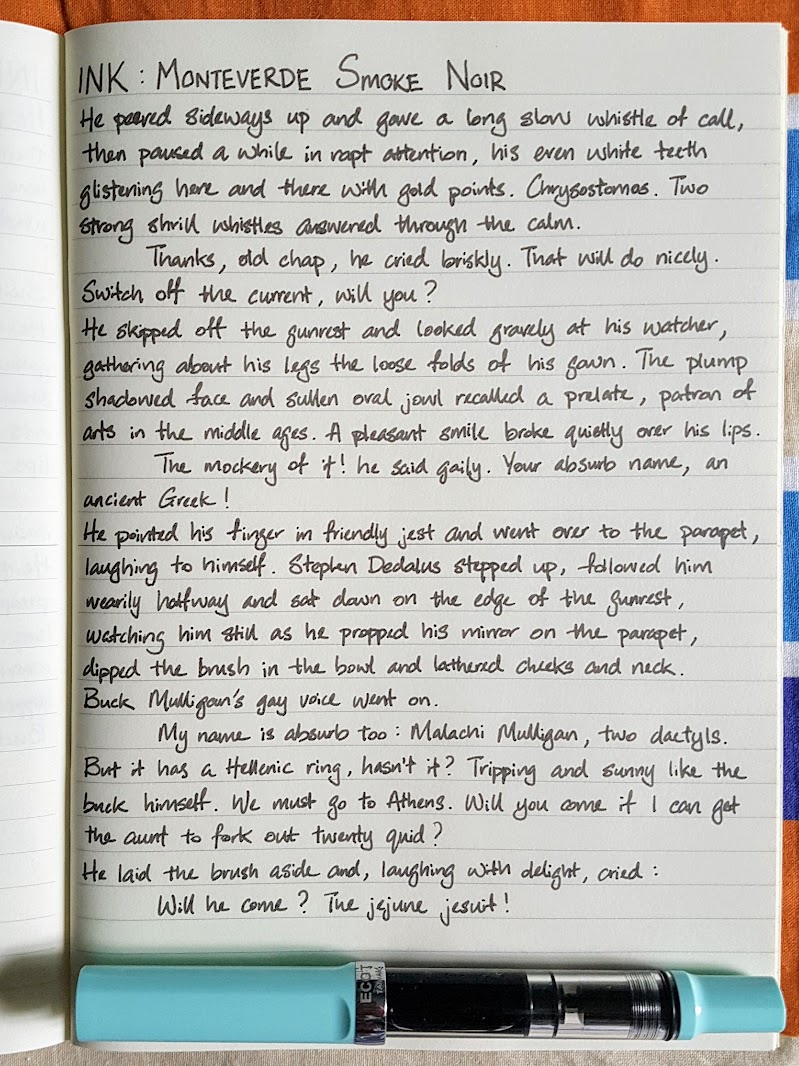 INK : MONTEVERDE SMOKE NOIR
He peered sideways up and gave a long slow whistle of call,
then paused a while in rapt attention, his even white teeth
glistening here and there with gold points. Chrysostomos. Two
strong shrill whistles answered through the calm.
Thanks, old chap, he cried briskly. That will do nicely.
Switch off the current, will you?
He skipped off the gunrest and looked gravely at his watcher,
gathering about his legs the loose folds of his gown. The plump
shadowed face and sullen oval jowl recalled a prelate, patron of
arts in the middle ages. A pleasant smile broke quietly over his lips.
The mockery of it! he said gaily. Your absurb name, an
ancient Greek!
He pointed his finger in friendly jest and went over to the parapet,
laughing to himself. Stephen Dedalus stepped up, followed him
wearily halfway and sat down on the edge of the gunrest,
watching him still as he propped his mirror on the parapet,
dipped the brush in the bowl and lathered cheeks and neck.
Buck Mulligan's gay voice went on.
My name is absurb too: Malachi Mulligan, two dactyls.
But it has a Hellenic ring, hasn't it? Tripping and sunny like the
buck himself. We must go to Athens. Will you come if I can get
the aunt to fork out twenty quid?
He laid the brush aside and, laughing with delight, cried:
Will he come? The jejune jesuit!
ECO-T